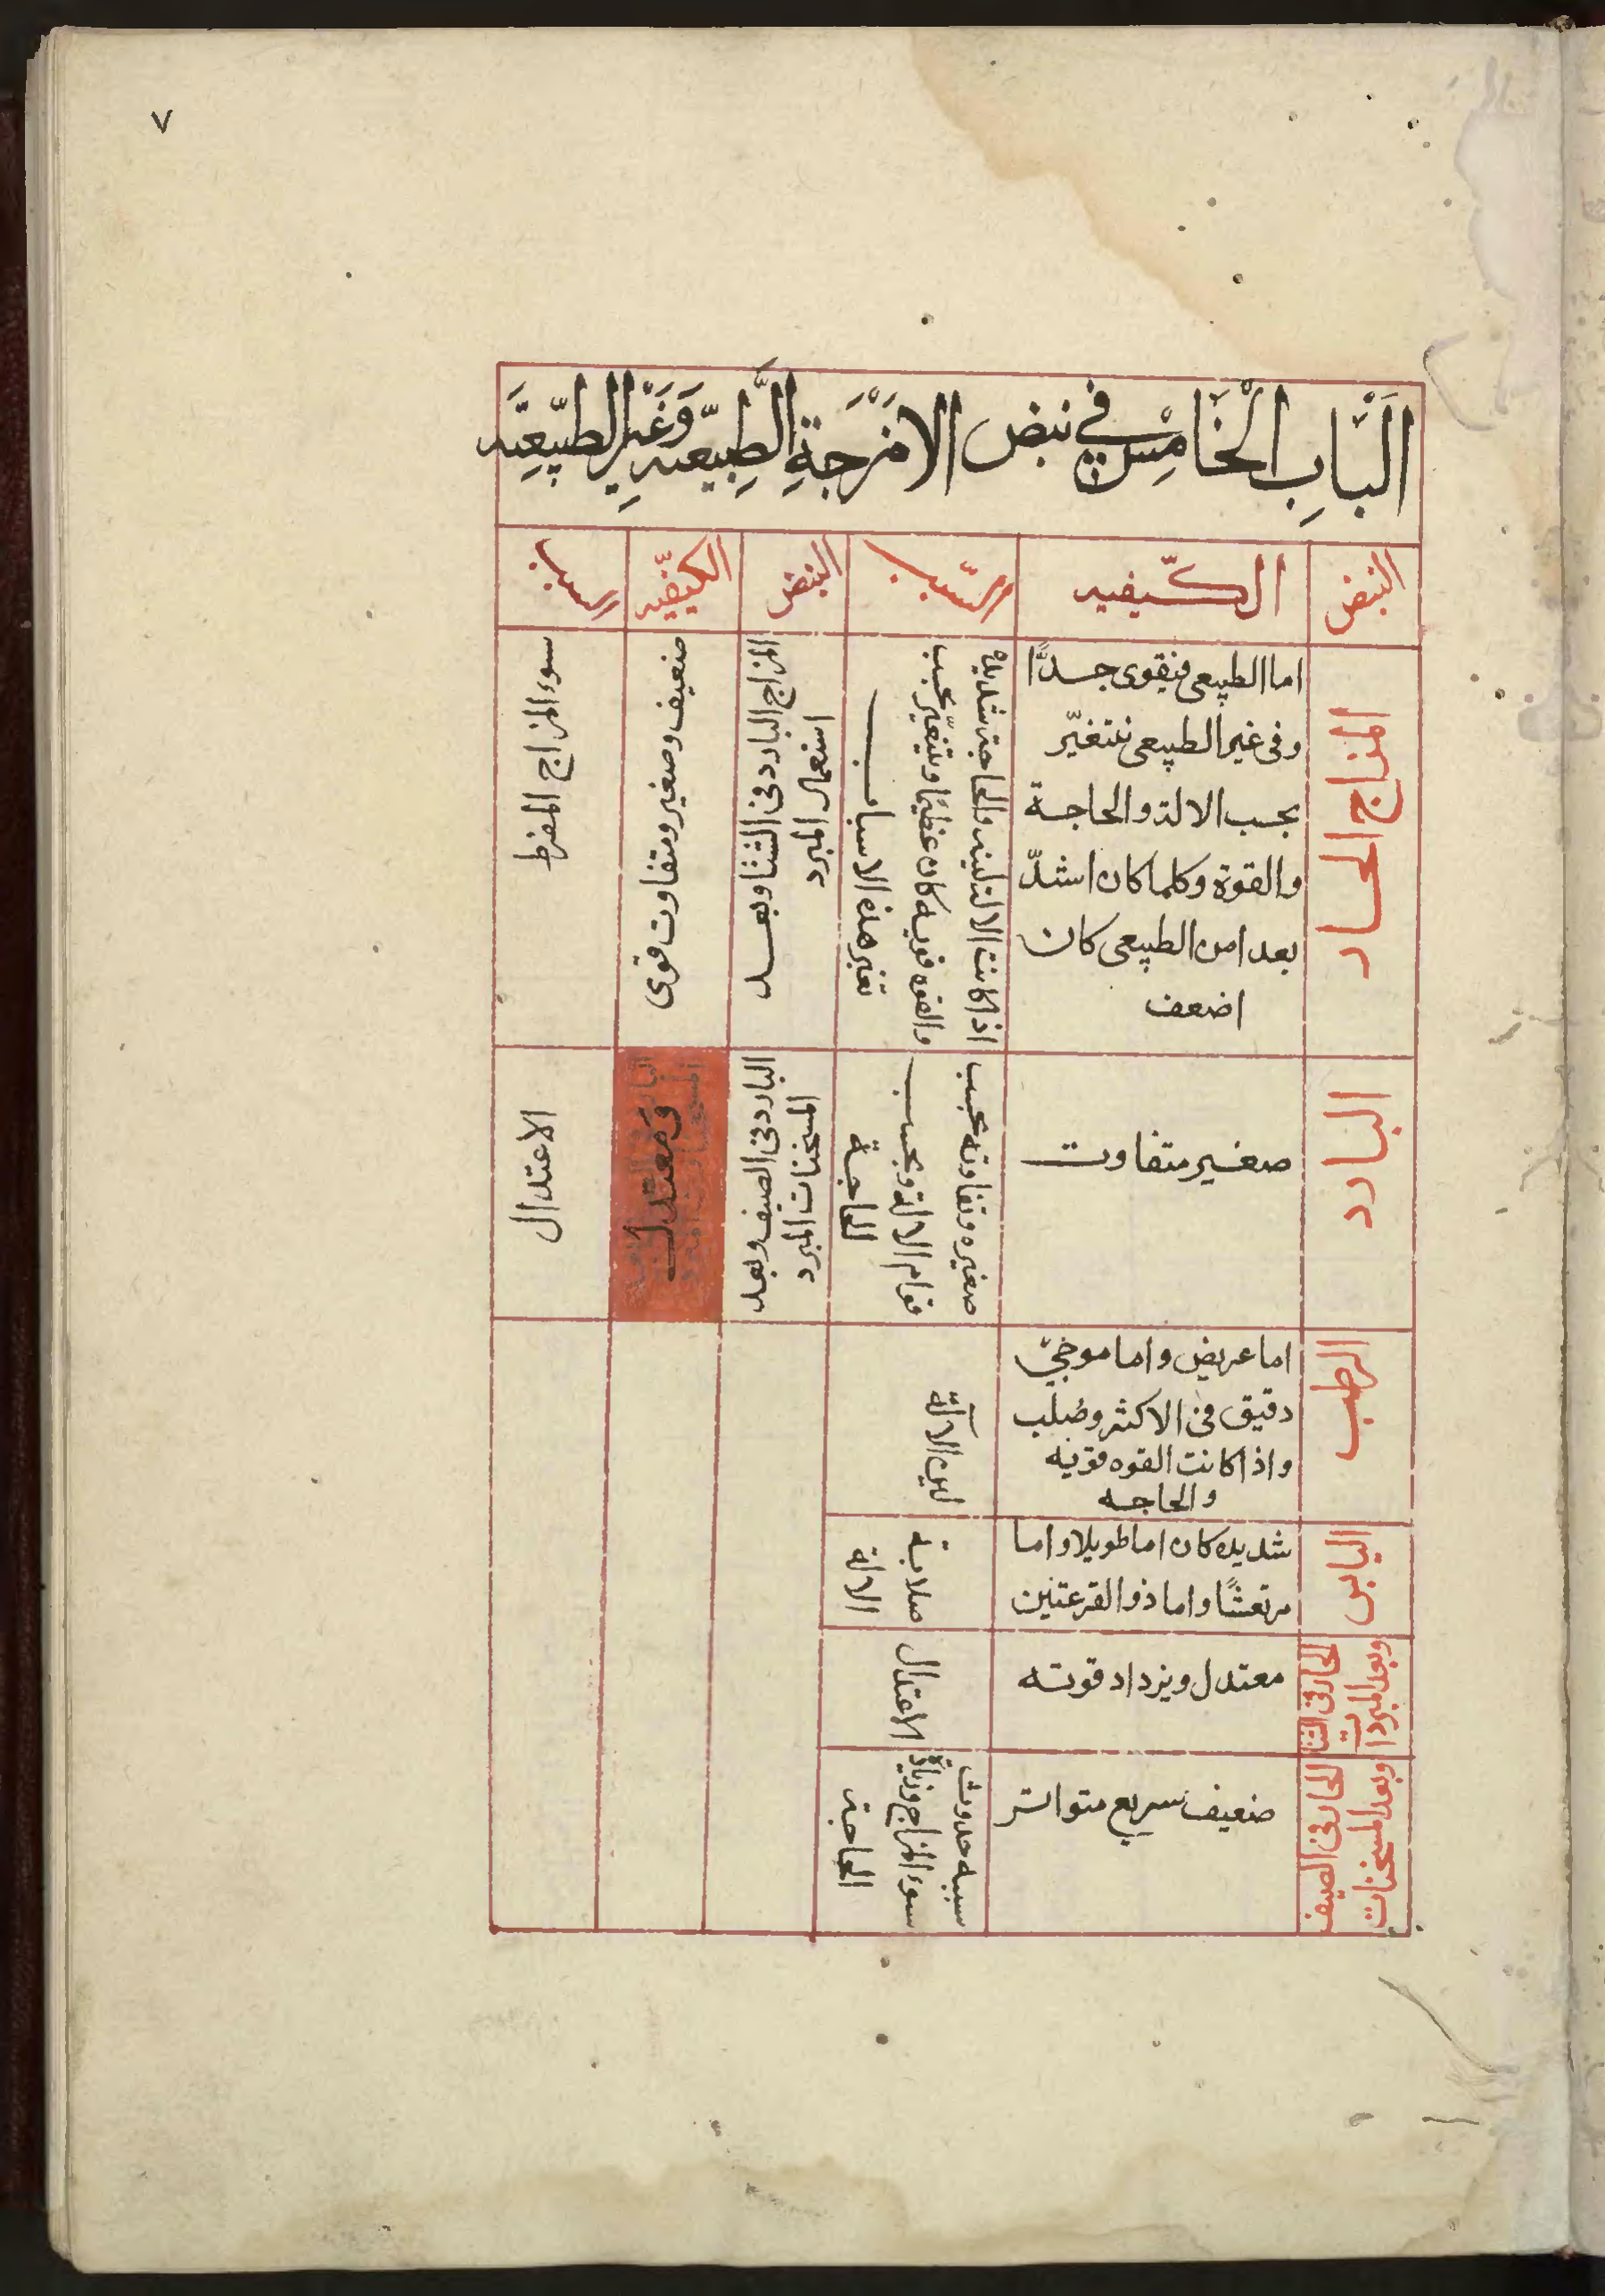 ٧
اَلبَابِ الْخَامِسْ فِي نبض الامْزَجَةِ الطَّبِيّعيه وَغَيْرِ الطَبّيعِيَه
النبض
الكّيفيه
السّبب
النبض
الكيفّيه
السبب
المزاج الحار
اما الطبيعى فيقوى جدًّا
وفى غير الطبيعى فتتغيّر
بحسب الالة والحاجة
والقوة وكلما كان اشدّ
بعدا من الطبيعى كان
اضعف
اذا كانت الالة لينه والحاجة شديدة
والقوه قويه كان عظيمًا ويتغيّر بحسب
تغير هذه الاسباب
المزاج البارد فى الشتا وبعد
استعمال المبرد
ضعيف وصغير ومتفاوت قوى
سوء المزاج المفرط
البارد
صغير متفاوت
صغيره وتفاوته بحسب
قوام الالة وبحسب
الحاجة
البارد فى الصيف وبعد
المسخنات المبرد
قوى معتدل
الاعتدال
الرطب
اما عريض واما موجىّ
دقيق فى الاكثر وصُلب
واذا كانت القوه قوّيه
والحاجه
لين الآلة
اليابس
شديده كان اما طويلا واما
مرتعشًا واما ذو القرعتين
صلابة
الالة
الحار فى الشتا
وبعد المبردات
معتدل ويزداد قوته
الاعتدال
الحار فى الصيف
وبعد المسخنات
ضعيف سريع متواتر
سببه حدوث
سوء المزاج وزيادة
الحاجة